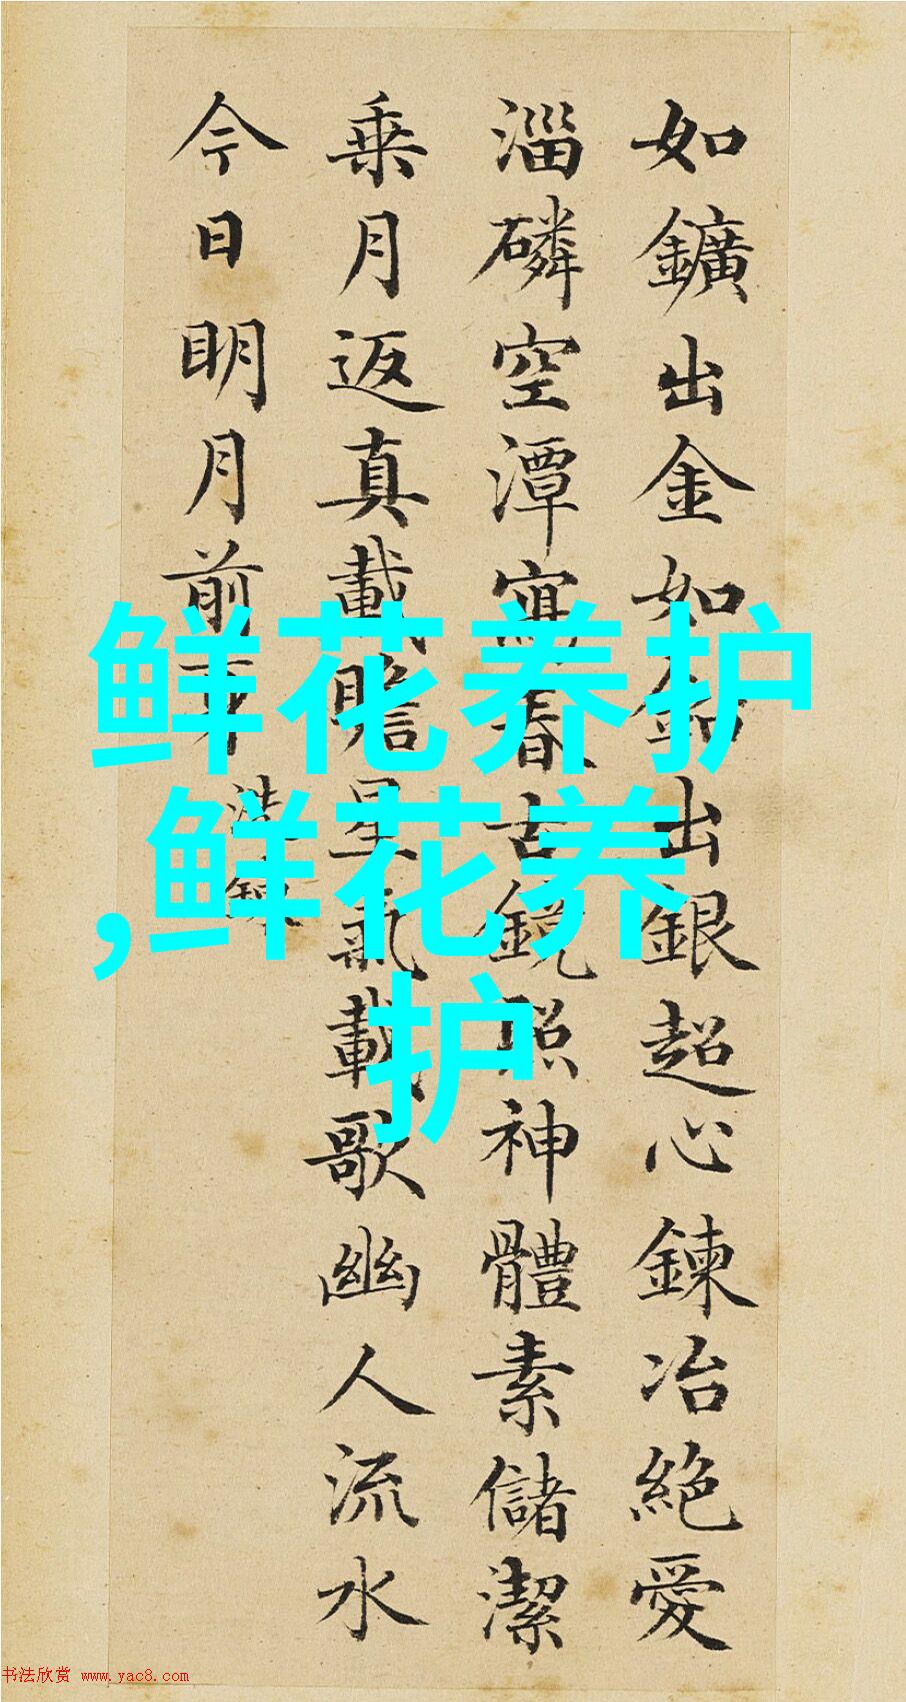 如鑛出金如鉛出銀超心鍊冶絕愛
淄磷空潭寫春古鏡照神體素儲潔
乗月返真載瞻星氣載歌幽人流水
今日明月前
鲜花养护
,鲜花养
护
书法欣赏 www.yac8.com